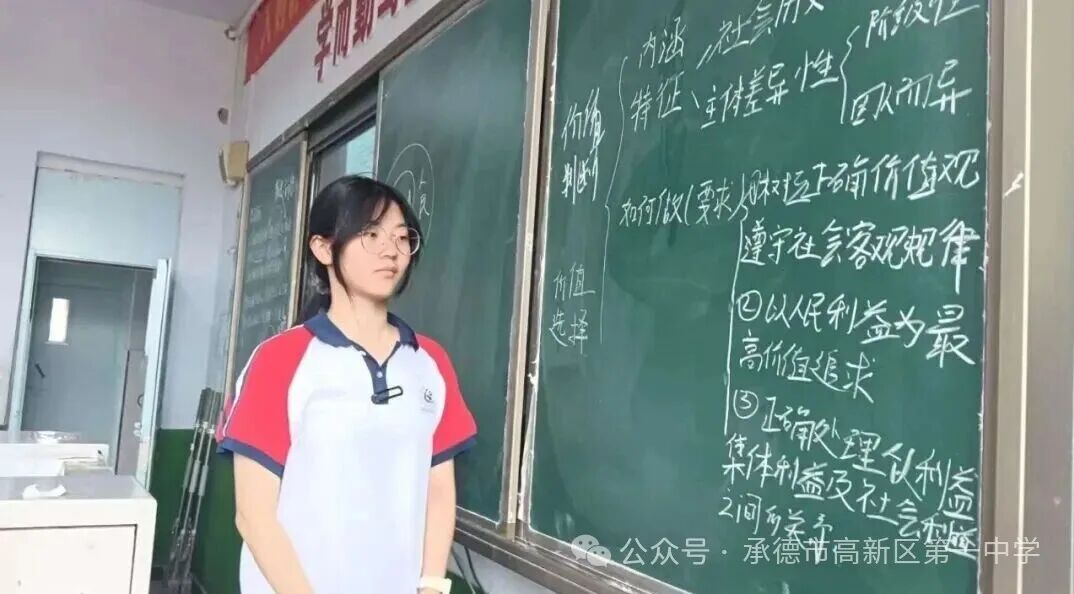 学而勤
内涵
社会历
特征、主体差异性
阶级性
因人而异
价值
判断
如何做(要求)
树立正确价值观
遵守社会客观规律
②以人民利益为最
高价值追求
价值
选择
③正确处理个人利益
集体利益及社会利益
之间的关系
公众号·承德市高新区第一中学